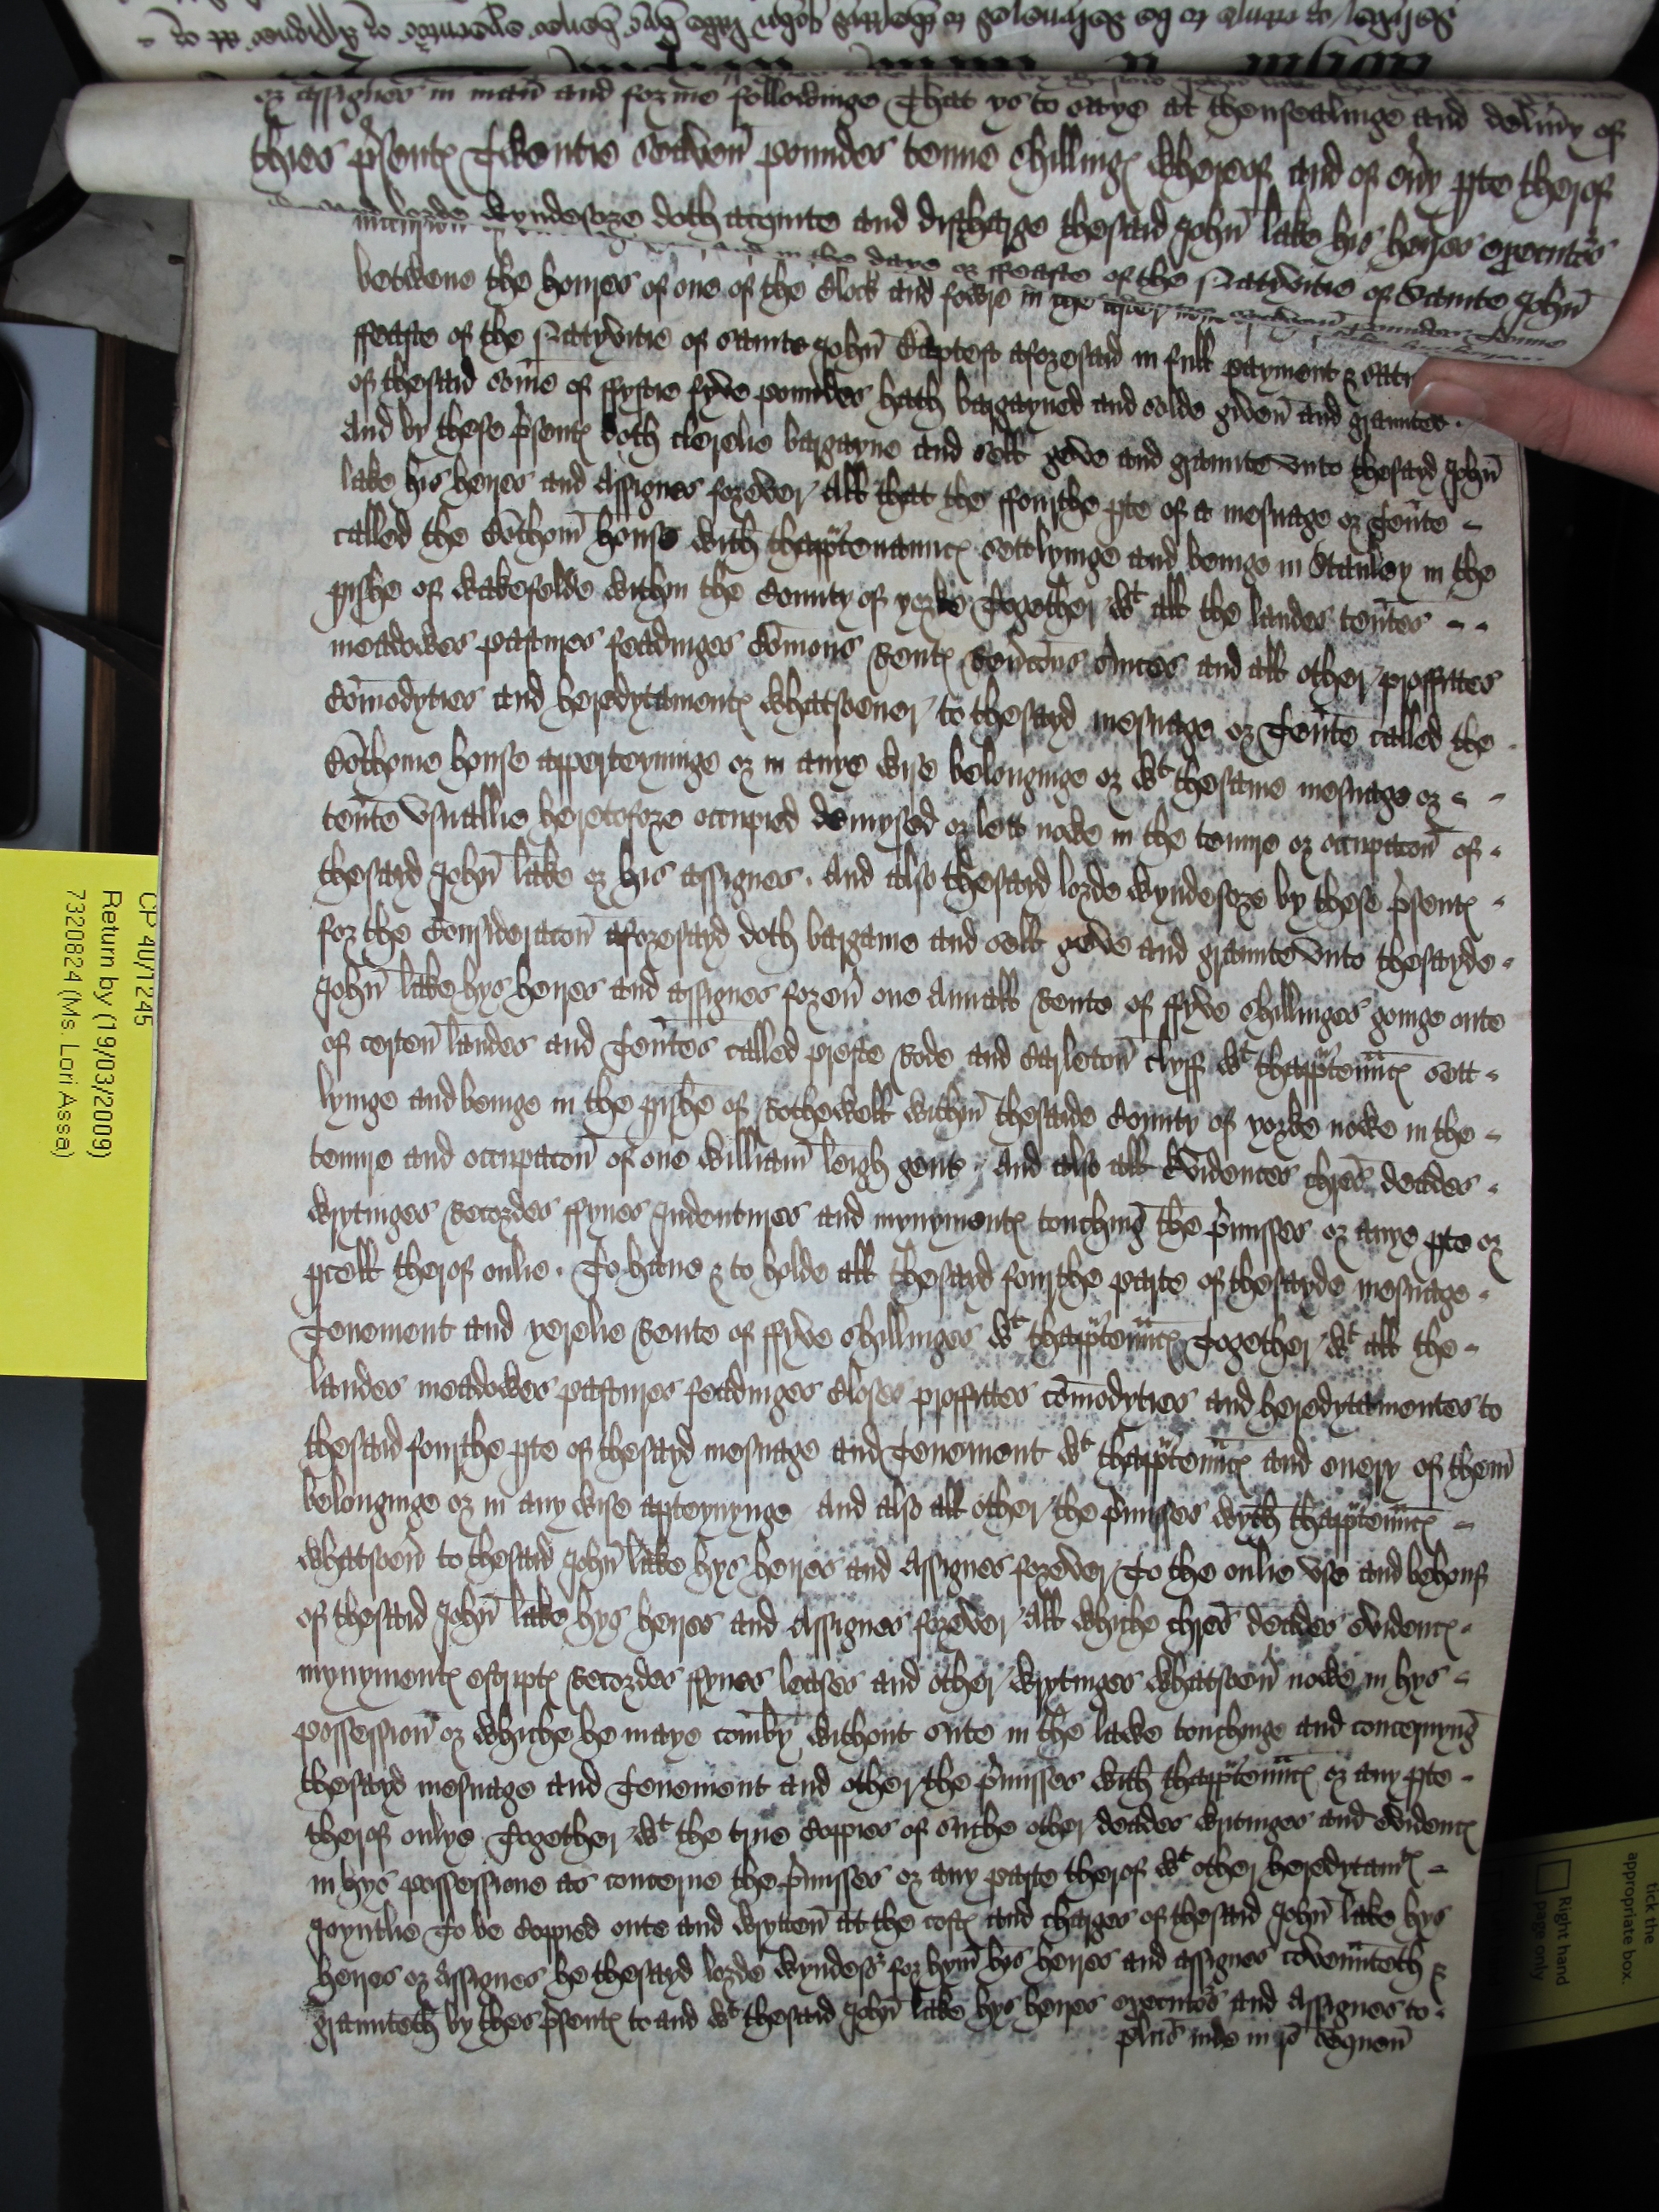 or assignes in man̄ and forme followinge That ys to saye at thensealinge and delıu̾y of
thies p̾sent℮ Twentie seaven̄ poundes tenne shilling℮ whereof and of eu̾y pte therof
lorde Wyndesore doth acquite and discharge thesaid John̄ lake his heyres executoͬs
and in the daye or ffeaste of the Natyvitie of Sainte John̄
betwene the houres of one of the Clock and fowre in the after
ffeaste of the Natyvitie of sainte John̄ Baptest aforesaid in full payment &
of thesaid som̄e of ffyftie fyve poundes hath bargayned and solde given̄ and graunted
And by these p̾sent℮ doth clerelie bargayne and sell geve and graunte vnto thesayd John̄
lake his heyres and Assignes forever All that the ffourthe pte of a mesuage or Ten̄te
called the Bothom̄ house with thapp͏ͬtenaunc℮ sett lyinge and beinge in Stanley in the
pishe of Wakefelde within the County of yorke Together wᵗ all the landes ten̄tes
meadowes pastures feadinges Com̄ons Rent℮ Reu̾c̄ons suites and all other proffittes
Com̄odyties and heredytament℮ whatsoever to thesayd mesuage or Ten̄te called the
Bothome house apperteyninge or in anye wise belonginge or wᵗ thesame mesuage or
ten̄te vsuallie heretofore occupied demysed or lett nowe in the tenure or occupac̄on̄ of
thesayd John̄ lake or his assignes. And also thesayd lorde Wyndesore by these p̾sent℮
for the Considerac̄on̄ aforesayd doth bargaine and sell geve and graunte vnto thesayde
John̄ lake hys heyres and assignes foreu̾ one Annuall Rente of ffyve shillinges goinge oute
of certen̄ landes and Ten̄tes called preste Rode and Carleton̄ clyff wᵗ thapp͏ͬten̄nc℮ sett
lyinge and beinge in the pishe of Rothewell within̄ thesaide County of yorke nowe in the
tenure and occupac̄on̄ of one William̄ leigh gent, And also all Evidences chres̄ deades
wrytinges Recordes ffynes Indentures and mynyment℮ touchinḡ the p̾misses or anye pte or
pcell therof onlie. To haue & to holde all thesayd fourthe parte of thesayde mesuage
Tenement and yerelie Rente of ffyve shillinges wᵗ thapp͏ͬten̄nc℮ Together wᵗ all the
landes meadowes pastures feadinges Closes proffittes com̄odyties and heredytamentes to
thesaid fourthe pte of thesayd mesuage and Tenement wᵗ thapp͏ͬten̄nc℮ and euery of them̄
belonginge or in any wise apteynynge And also all other the p̾misses wyth thapp͏ͬten̄nc℮
whatsoeu̾ to thesaid John̄ lake hys heyres and Assignes forever To the onlie vse and behouf
of thesaid John̄ lake hys heyres and Assignes forever All whiche chres̄ deades evidenc℮
mynyment℮ escript℮ Recordes ffynes leases and other wrytinges whatsoeu̾ nowe in hys
possession̄ or whiche he maye com̄by without suite in the lawe touchinge and concernynḡ
thesayd mesuage and Tenement and other the p̾misses with thapp͏ͬten̄nc℮ or any pte
therof onlye Together wᵗ the true Coppies of suche other deades writinges and evidenc℮
in hys possessione as concerne the p̾misses or any parte therof wᵗ other heredytam̾t℮
Joyntlie To be Coppied oute and wrytten̄ at the cost℮ and charges of thesaid John̄ lake hys
heyres or Assignes he thesayd lorde Wyndesͬ for hym̄ hys heyres and assignes coven̄nteth &
graunteth by thes p̾sent℮ to and wᵗ thesaid John̄ lake hys heyres executoͬs and Assignes to
plus̄ inde in ro̾ sequen̄
CP 40/1245
Return by (19/03/2009)
7320824 (Ms. Lori Assa)
tick the
appropriate box.
Right hand
page only